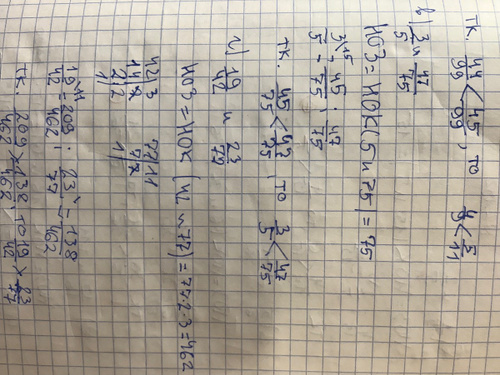 т.к. 44/99 < 45/99, то 4/9 < 5/11
в) 3/5 и 47/75
НОЗ = НОК(5 и 75) = 75
3^15/5 = 45/75; 47/75
т.к. 45/75 < 47/75, то 3/5 < 47/75
г) 19/42 и 23/77
НОЗ = НОК (42 и 77) = 77·2·3 = 462
42 | 3    77 | 11
14 | 2    7 | 7
1 |
19^11/42 = 209/462; 23^6/77 = 138/462
т.к. 209/462 > 138/462, то 19/42 > 23/77